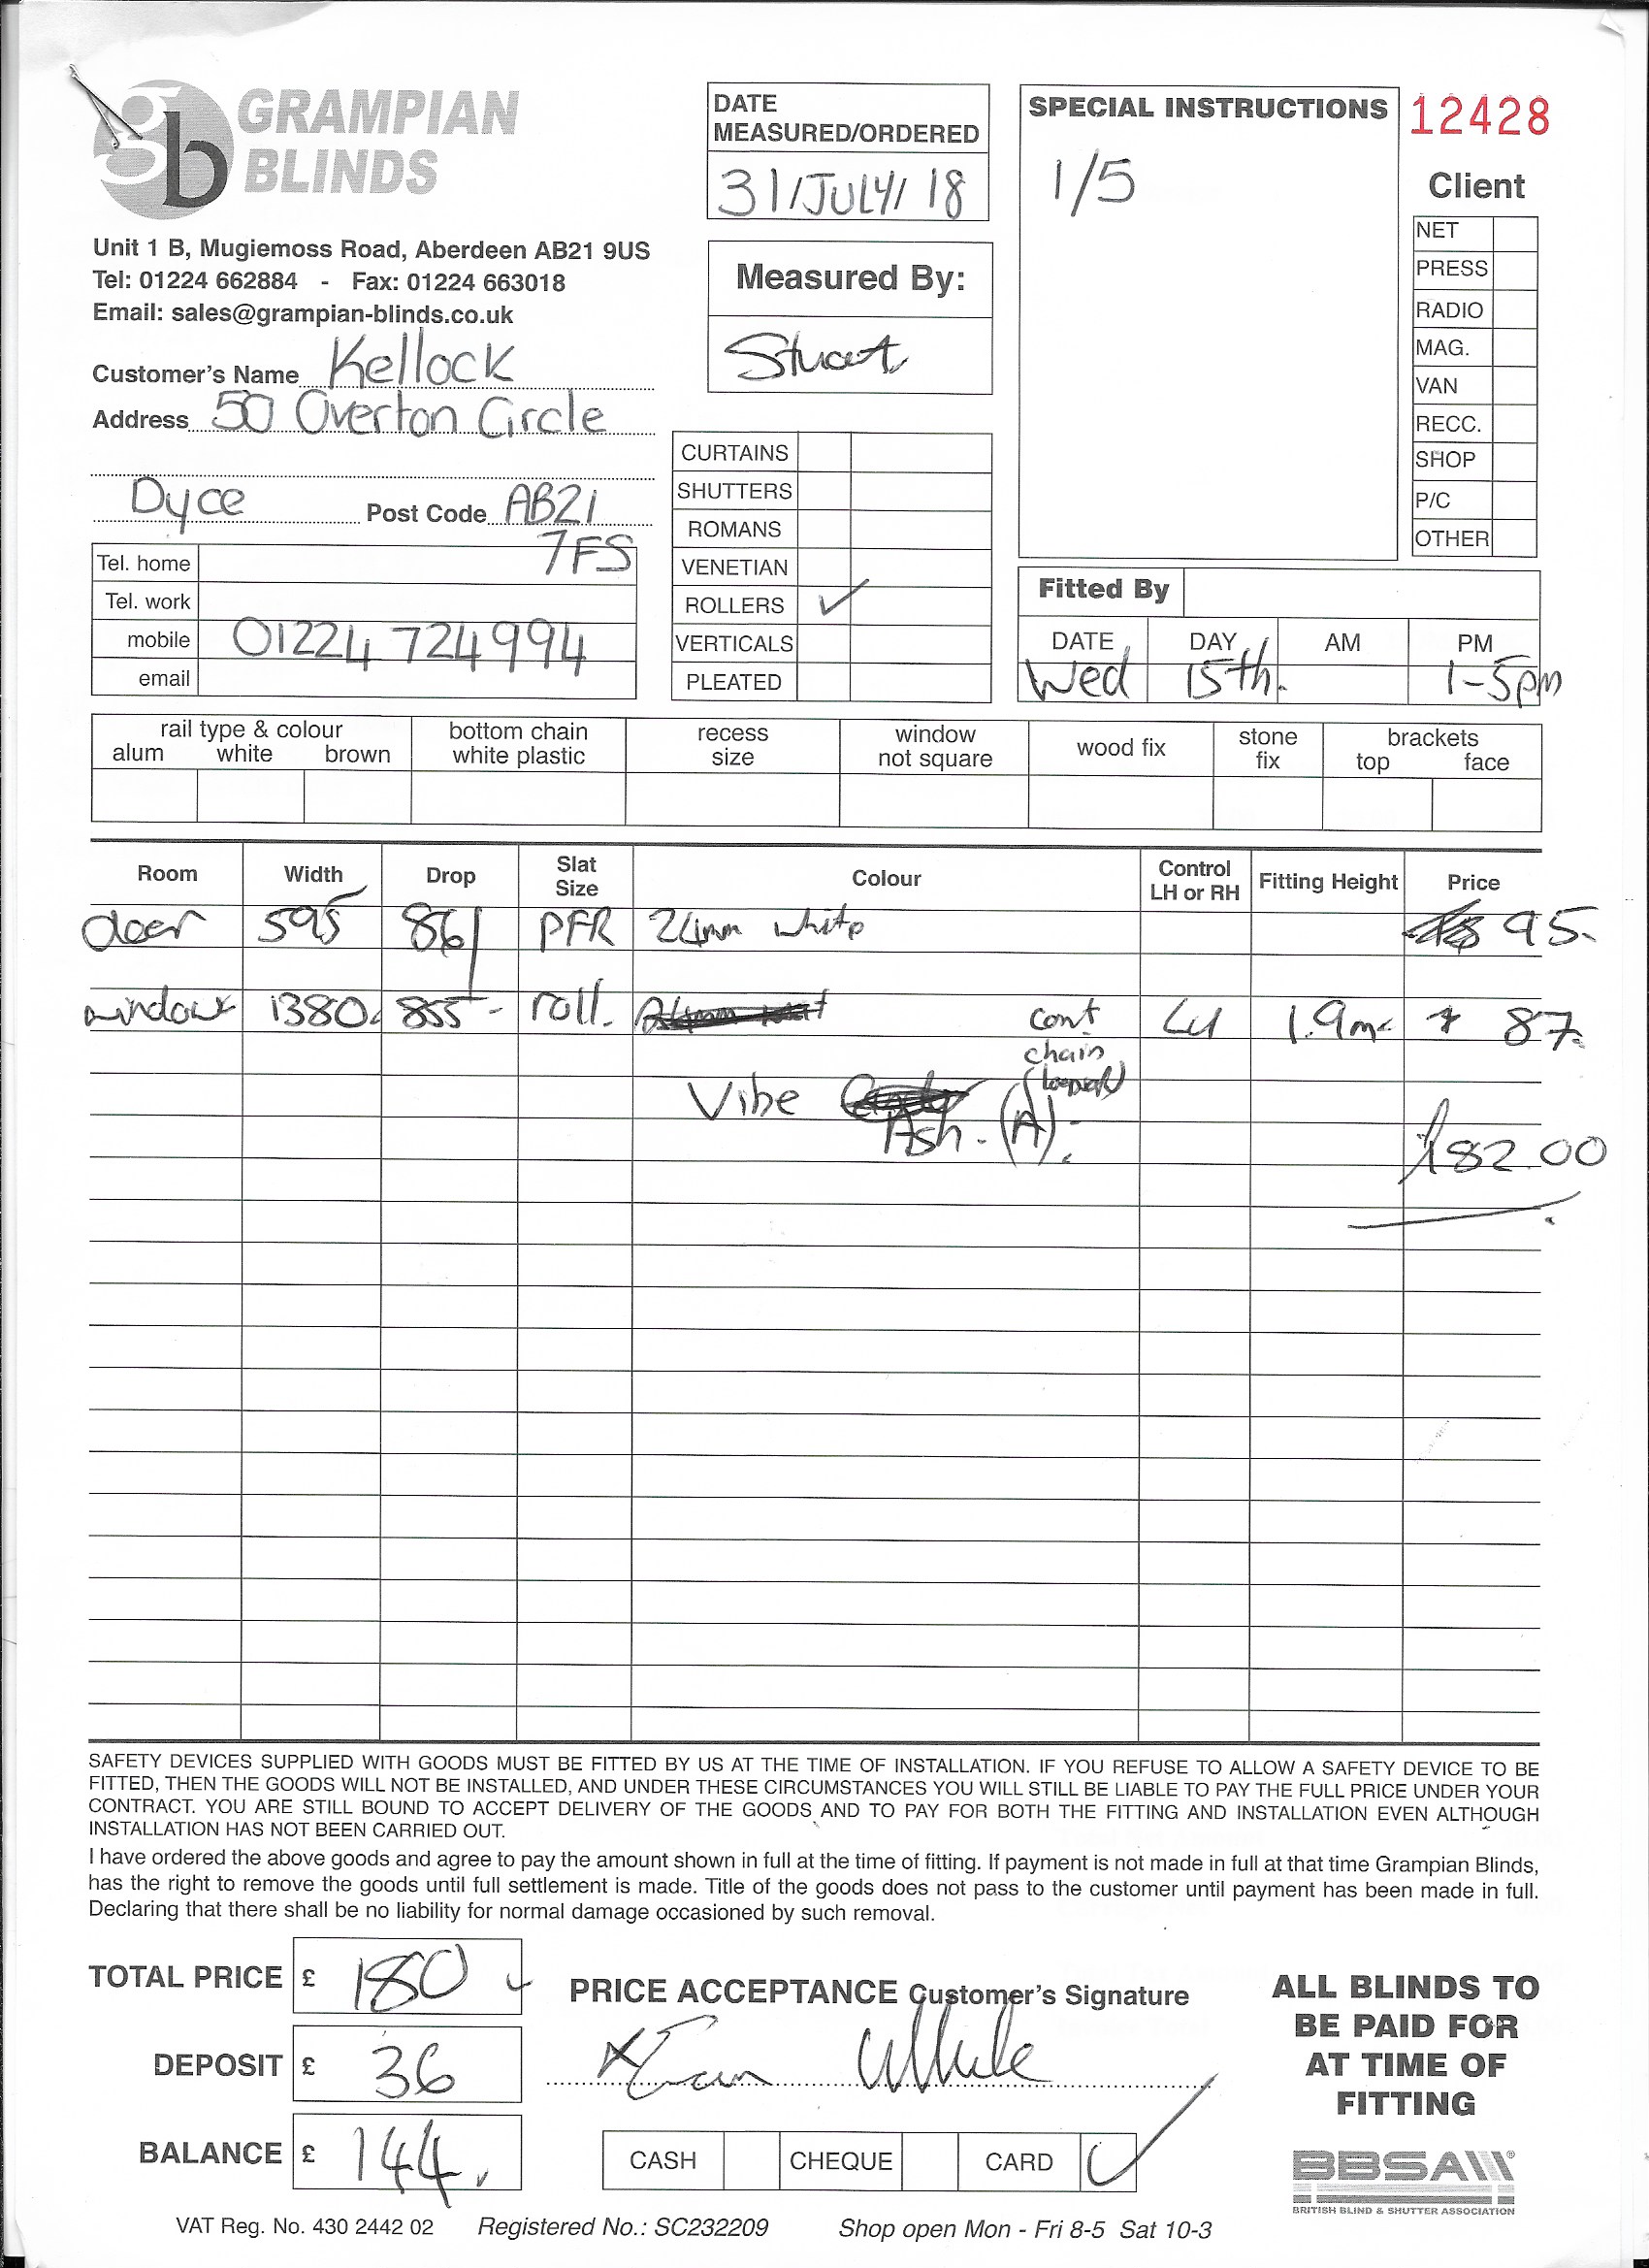 gb GRAMPIAN
BLINDS
Unit 1 B, Mugiemoss Road, Aberdeen AB21 9US
Tel: 01224 662884 - Fax: 01224 663018
Email: sales@grampian-blinds.co.uk
Customer's Name Kellock
Address 50 Overton Circle
Dyce Post Code AB21
7FS
Tel. home
Tel. work
mobile 01224 724994
email
DATE
MEASURED/ORDERED
31/JULY/18
Measured By:
Stuart
CURTAINS
SHUTTERS
ROMANS
VENETIAN
ROLLERS ✓
VERTICALS
PLEATED
SPECIAL INSTRUCTIONS
1/5
12428
Client
NET
PRESS
RADIO
MAG.
VAN
RECC.
SHOP
P/C
OTHER
Fitted By
DATE DAY AM PM
Wed 15th. 1-5pm
rail type & colour bottom chain recess window wood fix stone brackets
alum white brown white plastic size not square fix top face
Room Width Drop Slat Size Colour Control LH or RH Fitting Height Price
door 595 861 PFR 24mm white 95.
window 1380 855 - roll. cont LH 1.9m 87.
chain
Vibe
Ash. (A).
182.00
SAFETY DEVICES SUPPLIED WITH GOODS MUST BE FITTED BY US AT THE TIME OF INSTALLATION. IF YOU REFUSE TO ALLOW A SAFETY DEVICE TO BE
FITTED, THEN THE GOODS WILL NOT BE INSTALLED, AND UNDER THESE CIRCUMSTANCES YOU WILL STILL BE LIABLE TO PAY THE FULL PRICE UNDER YOUR
CONTRACT. YOU ARE STILL BOUND TO ACCEPT DELIVERY OF THE GOODS AND TO PAY FOR BOTH THE FITTING AND INSTALLATION EVEN ALTHOUGH
INSTALLATION HAS NOT BEEN CARRIED OUT.
I have ordered the above goods and agree to pay the amount shown in full at the time of fitting. If payment is not made in full at that time Grampian Blinds,
has the right to remove the goods until full settlement is made. Title of the goods does not pass to the customer until payment has been made in full.
Declaring that there shall be no liability for normal damage occasioned by such removal.
TOTAL PRICE £ 180
DEPOSIT £ 36
BALANCE £ 144
PRICE ACCEPTANCE Customer's Signature
CASH CHEQUE CARD ✓
ALL BLINDS TO
BE PAID FOR
AT TIME OF
FITTING
BBSA
BRITISH BLIND & SHUTTER ASSOCIATION
VAT Reg. No. 430 2442 02 Registered No.: SC232209 Shop open Mon - Fri 8-5 Sat 10-3